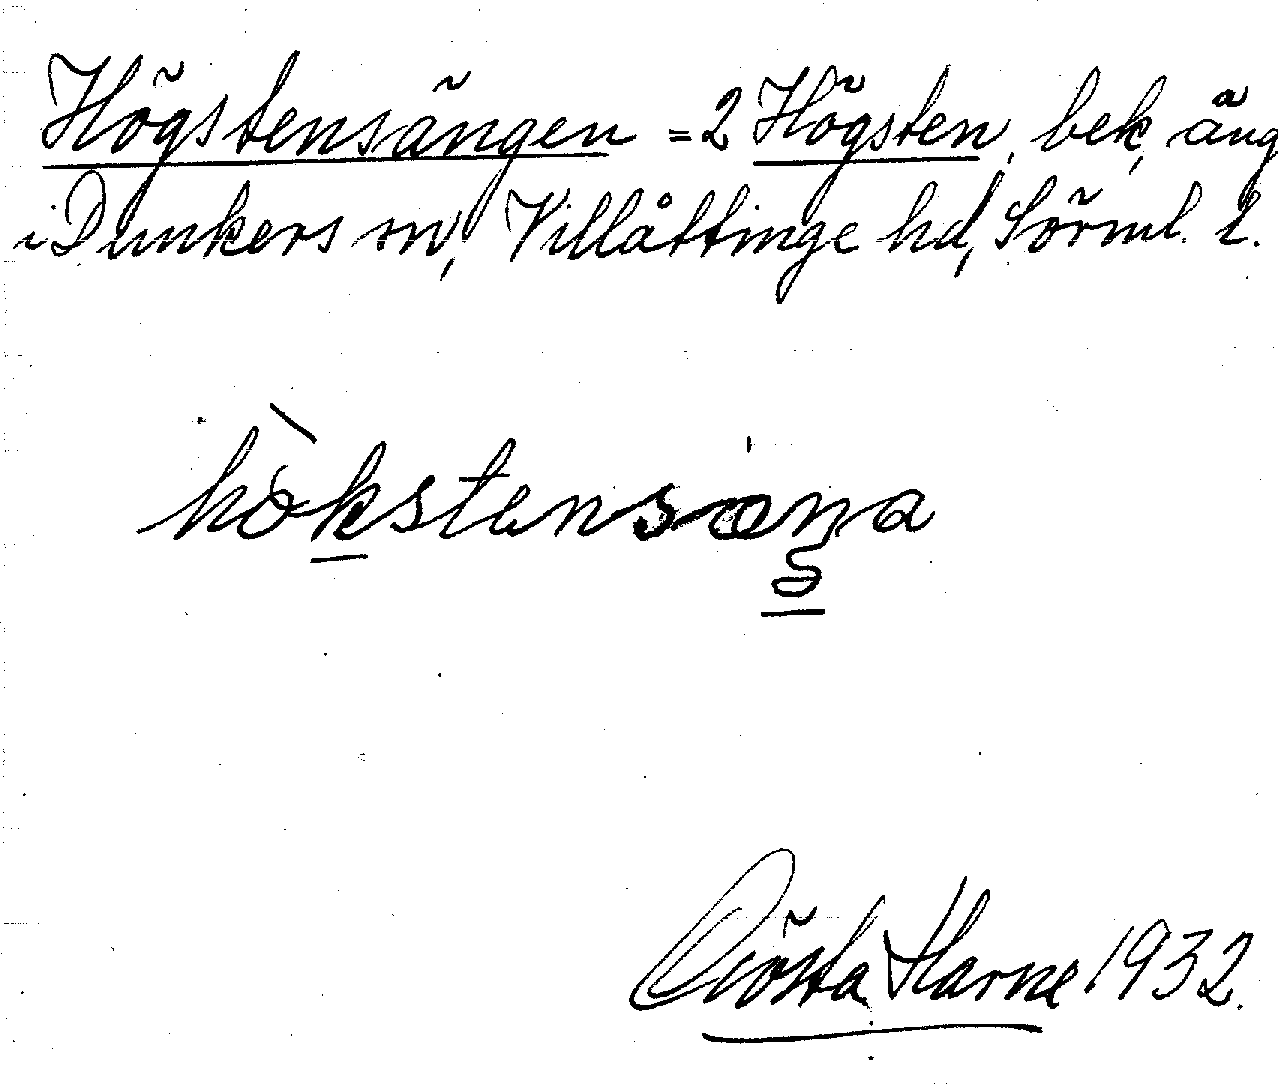 Högstensängen = 2 Högsten, bek, äng
i Dunkers sn, Villåttinge hd, Sörml. l.
Gösta Harne 1932.